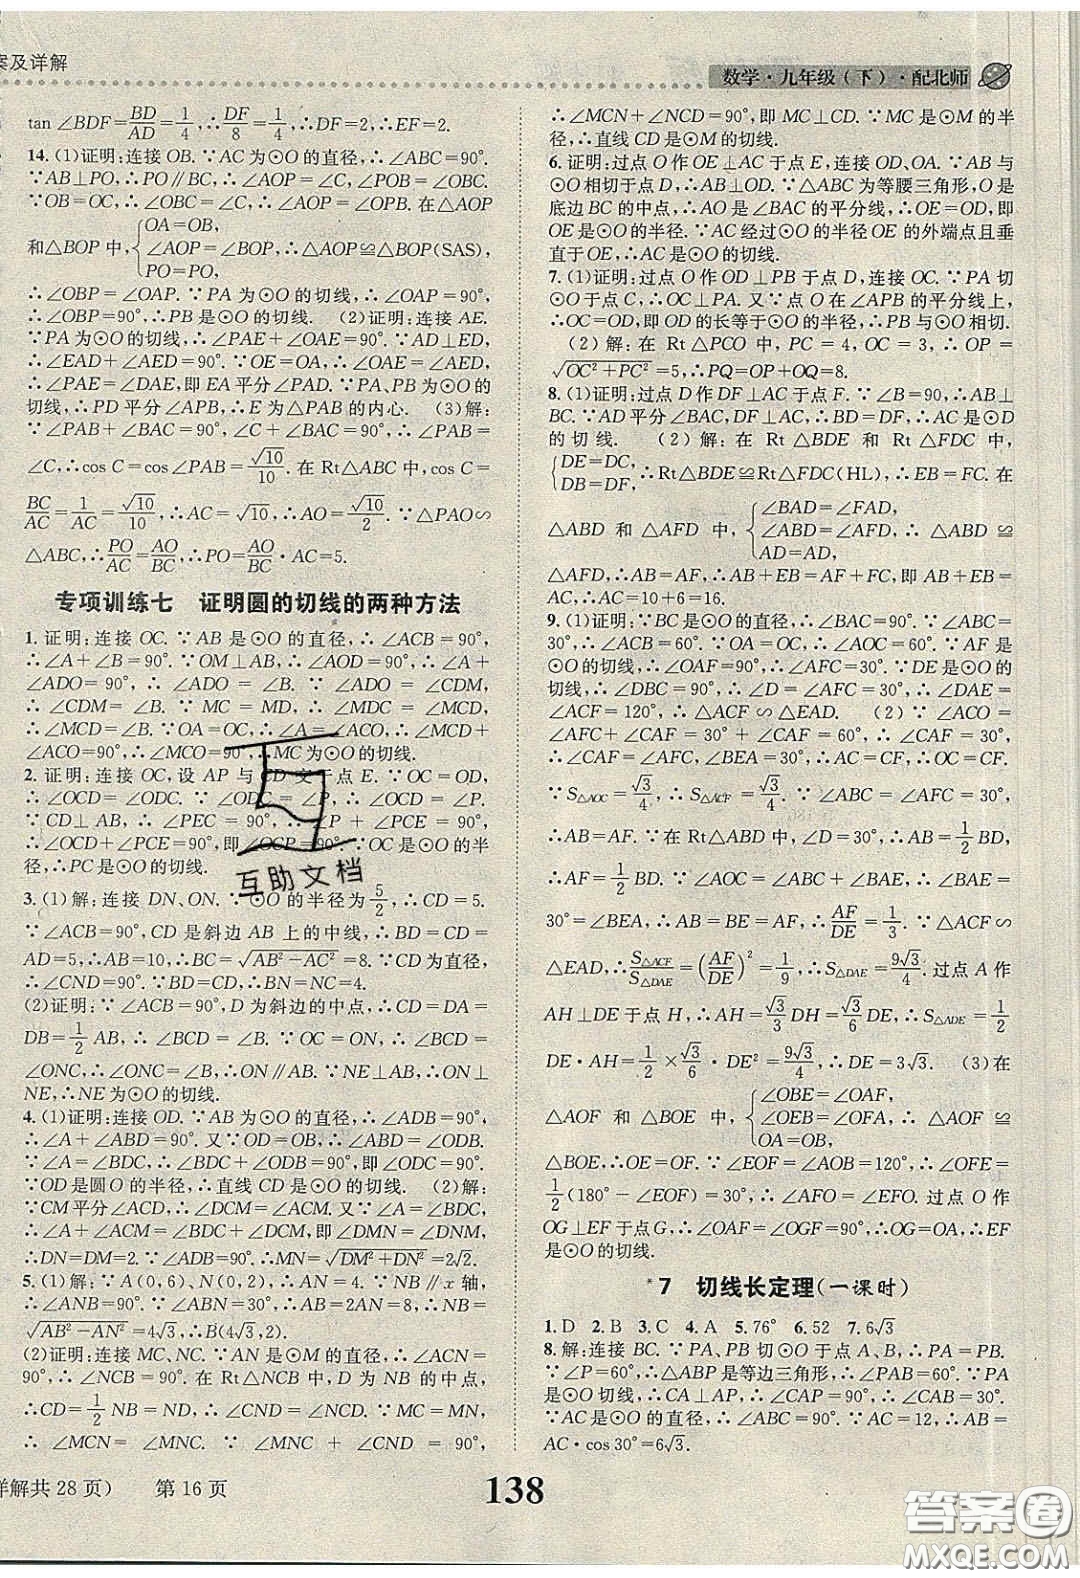 案及详解
数学·九年级(下)·配北师
tan∠BDF=BD/AD=1/4,∴DF/8=1/4,∴DF=2,∴EF=2.
14.(1)证明:连接OB.∵AC为⊙O的直径,∴∠ABC=90°.
∵AB⊥PO,∴PO∥BC,∴∠AOP=∠C,∠POB=∠OBC.
∵OB=OC,∴∠OBC=∠C,∴∠AOP=∠OPB.在△AOP
和△BOP中,{OA=OB,∠AOP=∠BOP,PO=PO,∴△AOP≌△BOP(SAS),
∴∠OBP=∠OAP.∵PA为⊙O的切线,∴∠OAP=90°,
∴∠OBP=90°,∴PB是⊙O的切线. (2)证明:连接AE.
∵PA为⊙O的切线,∴∠PAE+∠OAE=90°.∵AD⊥ED,
∴∠EAD+∠AED=90°.∵OE=OA,∴∠OAE=∠AED,
∴∠PAE=∠DAE,即EA平分∠PAD.∵PA、PB为⊙O的
切线,∴PD平分∠APB,∴E为△PAB的内心. (3)解:
∵∠PAB+∠BAC=90°,∠C+∠BAC=90°,∴∠PAB=
∠C,∴cos C=cos∠PAB=√10/10.在Rt△ABC中,cos C=
BC/AC=1/AC=√10/10,∴AC=√10,∴AO=√10/2.∵△PAO∽
△ABC,∴PO/AC=AO/BC,∴PO=AO/BC·AC=5.
专项训练七 证明圆的切线的两种方法
1.证明:连接OC.∵AB是⊙O的直径,∴∠ACB=90°,
∴∠A+∠B=90°.∵OM⊥AB,∴∠AOD=90°,∴∠A+
∠ADO=90°,∴∠ADO=∠B.∵∠ADO=∠CDM,
∴∠CDM=∠B.∵MC=MD,∴∠MDC=∠MCD,
∴∠MCD=∠B.∵OA=OC,∴∠A=∠ACO,∴∠MCD+
∠ACO=90°,∴∠MCO=90°,∴MC为⊙O的切线.
2.证明:连接OC,设AP与CD交于点E.∵OC=OD,
∴∠OCD=∠ODC.∵∠ODC=∠P,∴∠OCD=∠P.
∵CD⊥AB,∴∠PEC=90°,∴∠P+∠PCE=90°,
∴∠OCD+∠PCE=90°,即∠OCP=90°.∵OC是⊙O的半
径,∴PC是⊙O的切线.
3.(1)解:连接DN、ON.∵⊙O的半径为5/2,∴CD=5.
∵∠ACB=90°,CD是斜边AB上的中线,∴BD=CD=
AD=5,∴AB=10,∴BC=√AB²-AC²=8.∵CD为直径,
∴∠CND=90°.∵BD=CD,∴BN=NC=4.
(2)证明:∵∠ACB=90°,D为斜边的中点,∴CD=DA=
DB=1/2AB,∴∠BCD=∠B.∵OC=ON,∴∠BCD=
∠ONC,∴∠ONC=∠B,∴ON∥AB.∵NE⊥AB,∴ON⊥
NE,∴NE为⊙O的切线.
4.(1)证明:连接OD.∵AB为⊙O的直径,∴∠ADB=90°,
∴∠A+∠ABD=90°.又∵OD=OB,∴∠ABD=∠ODB.
∵∠A=∠BDC,∴∠BDC+∠ODB=90°,即∠ODC=90°.
∵OD是圆O的半径,∴直线CD是⊙O的切线. (2)解:
∵CM平分∠ACD,∴∠DCM=∠ACM.又∵∠A=∠BDC,
∴∠A+∠ACM=∠BDC+∠DCM,即∠DMN=∠DNM,
∴DN=DM=2.∵∠ADB=90°,∴MN=√DM²+DN²=2√2.
5.(1)解:∵A(0,6),N(0,2),∴AN=4.∵NB∥x轴,
∴∠ANB=90°.∵∠ABN=30°,∴AB=2AN=8,∴NB=
√AB²-AN²=4√3,∴B(4√3,2).
(2)证明:连接MC、NC.∵AN是⊙M的直径,∴∠ACN=
90°,∴∠NCB=90°.在Rt△NCB中,D为NB的中点,
∴CD=1/2NB=ND,∴∠CND=∠NCD.∵MC=MN,
∴∠MCN=∠MNC.∵∠MNC+∠CND=90°,
∴∠MCN+∠NCD=90°,即MC⊥CD.∵MC是⊙M的半
径,∴直线CD是⊙M的切线.
6.证明:过点O作OE⊥AC于点E,连接OD、OA.∵AB与
⊙O相切于点D,∴AB⊥OD.∵△ABC为等腰三角形,O是
底边BC的中点,∴AO是∠BAC的平分线,∴OE=OD,即
OE是⊙O的半径.∵AC经过⊙O的半径OE的外端点且垂
直于OE,∴AC是⊙O的切线.
7.(1)证明:过点O作OD⊥PB于点D,连接OC.∵PA切
⊙O于点C,∴OC⊥PA.又∵点O在∠APB的平分线上,
∴OC=OD,即OD的长等于⊙O的半径,∴PB与⊙O相切.
(2)解:在Rt△PCO中,PC=4,OC=3,∴OP=
√OC²+PC²=5,∴PQ=OP+OQ=8.
8.(1)证明:过点D作DF⊥AC于点F.∵∠B=90°,∴AB⊥
BC.∵AD平分∠BAC,DF⊥AC,∴BD=DF,∴AC是⊙D
的切线. (2)解:在Rt△BDE和Rt△FDC中,
{DE=DC,DB=DF,∴Rt△BDE≌Rt△FDC(HL),∴EB=FC.在
△ABD和△AFD中,{∠BAD=∠FAD,∠ABD=∠AFD,AD=AD,∴△ABD≌
△AFD(AAS),∴AB=AF,∴AB+BE=AF+FC,即AB+
BE=AC=10+6=16.
9.(1)证明:∵BC是⊙O的直径,∴∠BAC=90°.∵∠ABC=
30°,∴∠ACB=60°.∵OA=OC,∴∠AOC=60°.∵AF是
⊙O的切线,∴∠OAF=90°,∴∠AFC=30°.∵DE是⊙O的
切线,∴∠DBC=90°,∴∠D=∠AFC=30°,∴∠DAE=
∠ACF=120°,∴△ACF∽△EAD. (2)∵∠ACO=
∠AFC+∠CAF=30°+∠CAF=60°,∴∠CAF=30°,
∴∠CAF=∠AFC=30°,∴AC=CF,∴OC=CF.
∵S△AOC=√3/4,∴S△ACF=√3/4.∵∠ABC=∠AFC=30°,
∴AB=AF.在Rt△ABD中,∠D=30°,∴AB=1/2BD,
∴AF=1/2BD.∵∠AOC=∠BAE,∴∠BAE=
30°=∠BEA,∴AB=BE=AF,∴AF/DE=1/3.∵△ACF∽
△EAD,∴S△ACF/S△DAE=(AF/DE)²=1/9,∴S△DAE=9√3/4.过点A作
AH⊥DE于点H,∴AH=√3/3DH=√3/6DE,∴S△ADE=1/2
DE·AH=1/2×√3/6·DE²=9√3/4,∴DE=3√3. (3)在
△AOF和△BOE中,{∠OBE=∠OAF,∠OEB=∠OFA,OA=OB,∴△AOF≌
△BOE,∴OE=OF.∵∠EOF=∠AOB=120°,∴∠OFE=
1/2(180°-∠EOF)=30°,∴∠AFO=∠EFO.过点O作
OG⊥EF于点G,∴∠OAF=∠OGF=90°,∴OG=OA,∴EF
是⊙O的切线.
*7 切线长定理(一课时)
1.D 2.B 3.C 4.A 5.76° 6.52 7.6√3
8.解:连接BC.∵PA、PB切⊙O于点A、B,∴PA=PB.
∵∠P=60°,∴△ABP是等边三角形,∴∠PAB=60°.∵PA
是⊙O切线,∴CA⊥AP,∴∠CAP=90°,∴∠CAB=30°.
∵AC是⊙O的直径,∴∠ABC=90°.∵AC=12,∴AB=
AC·cos30°=6√3.
详解共28页) 第16页
138
互助文档
答案圈
MXQE.COM